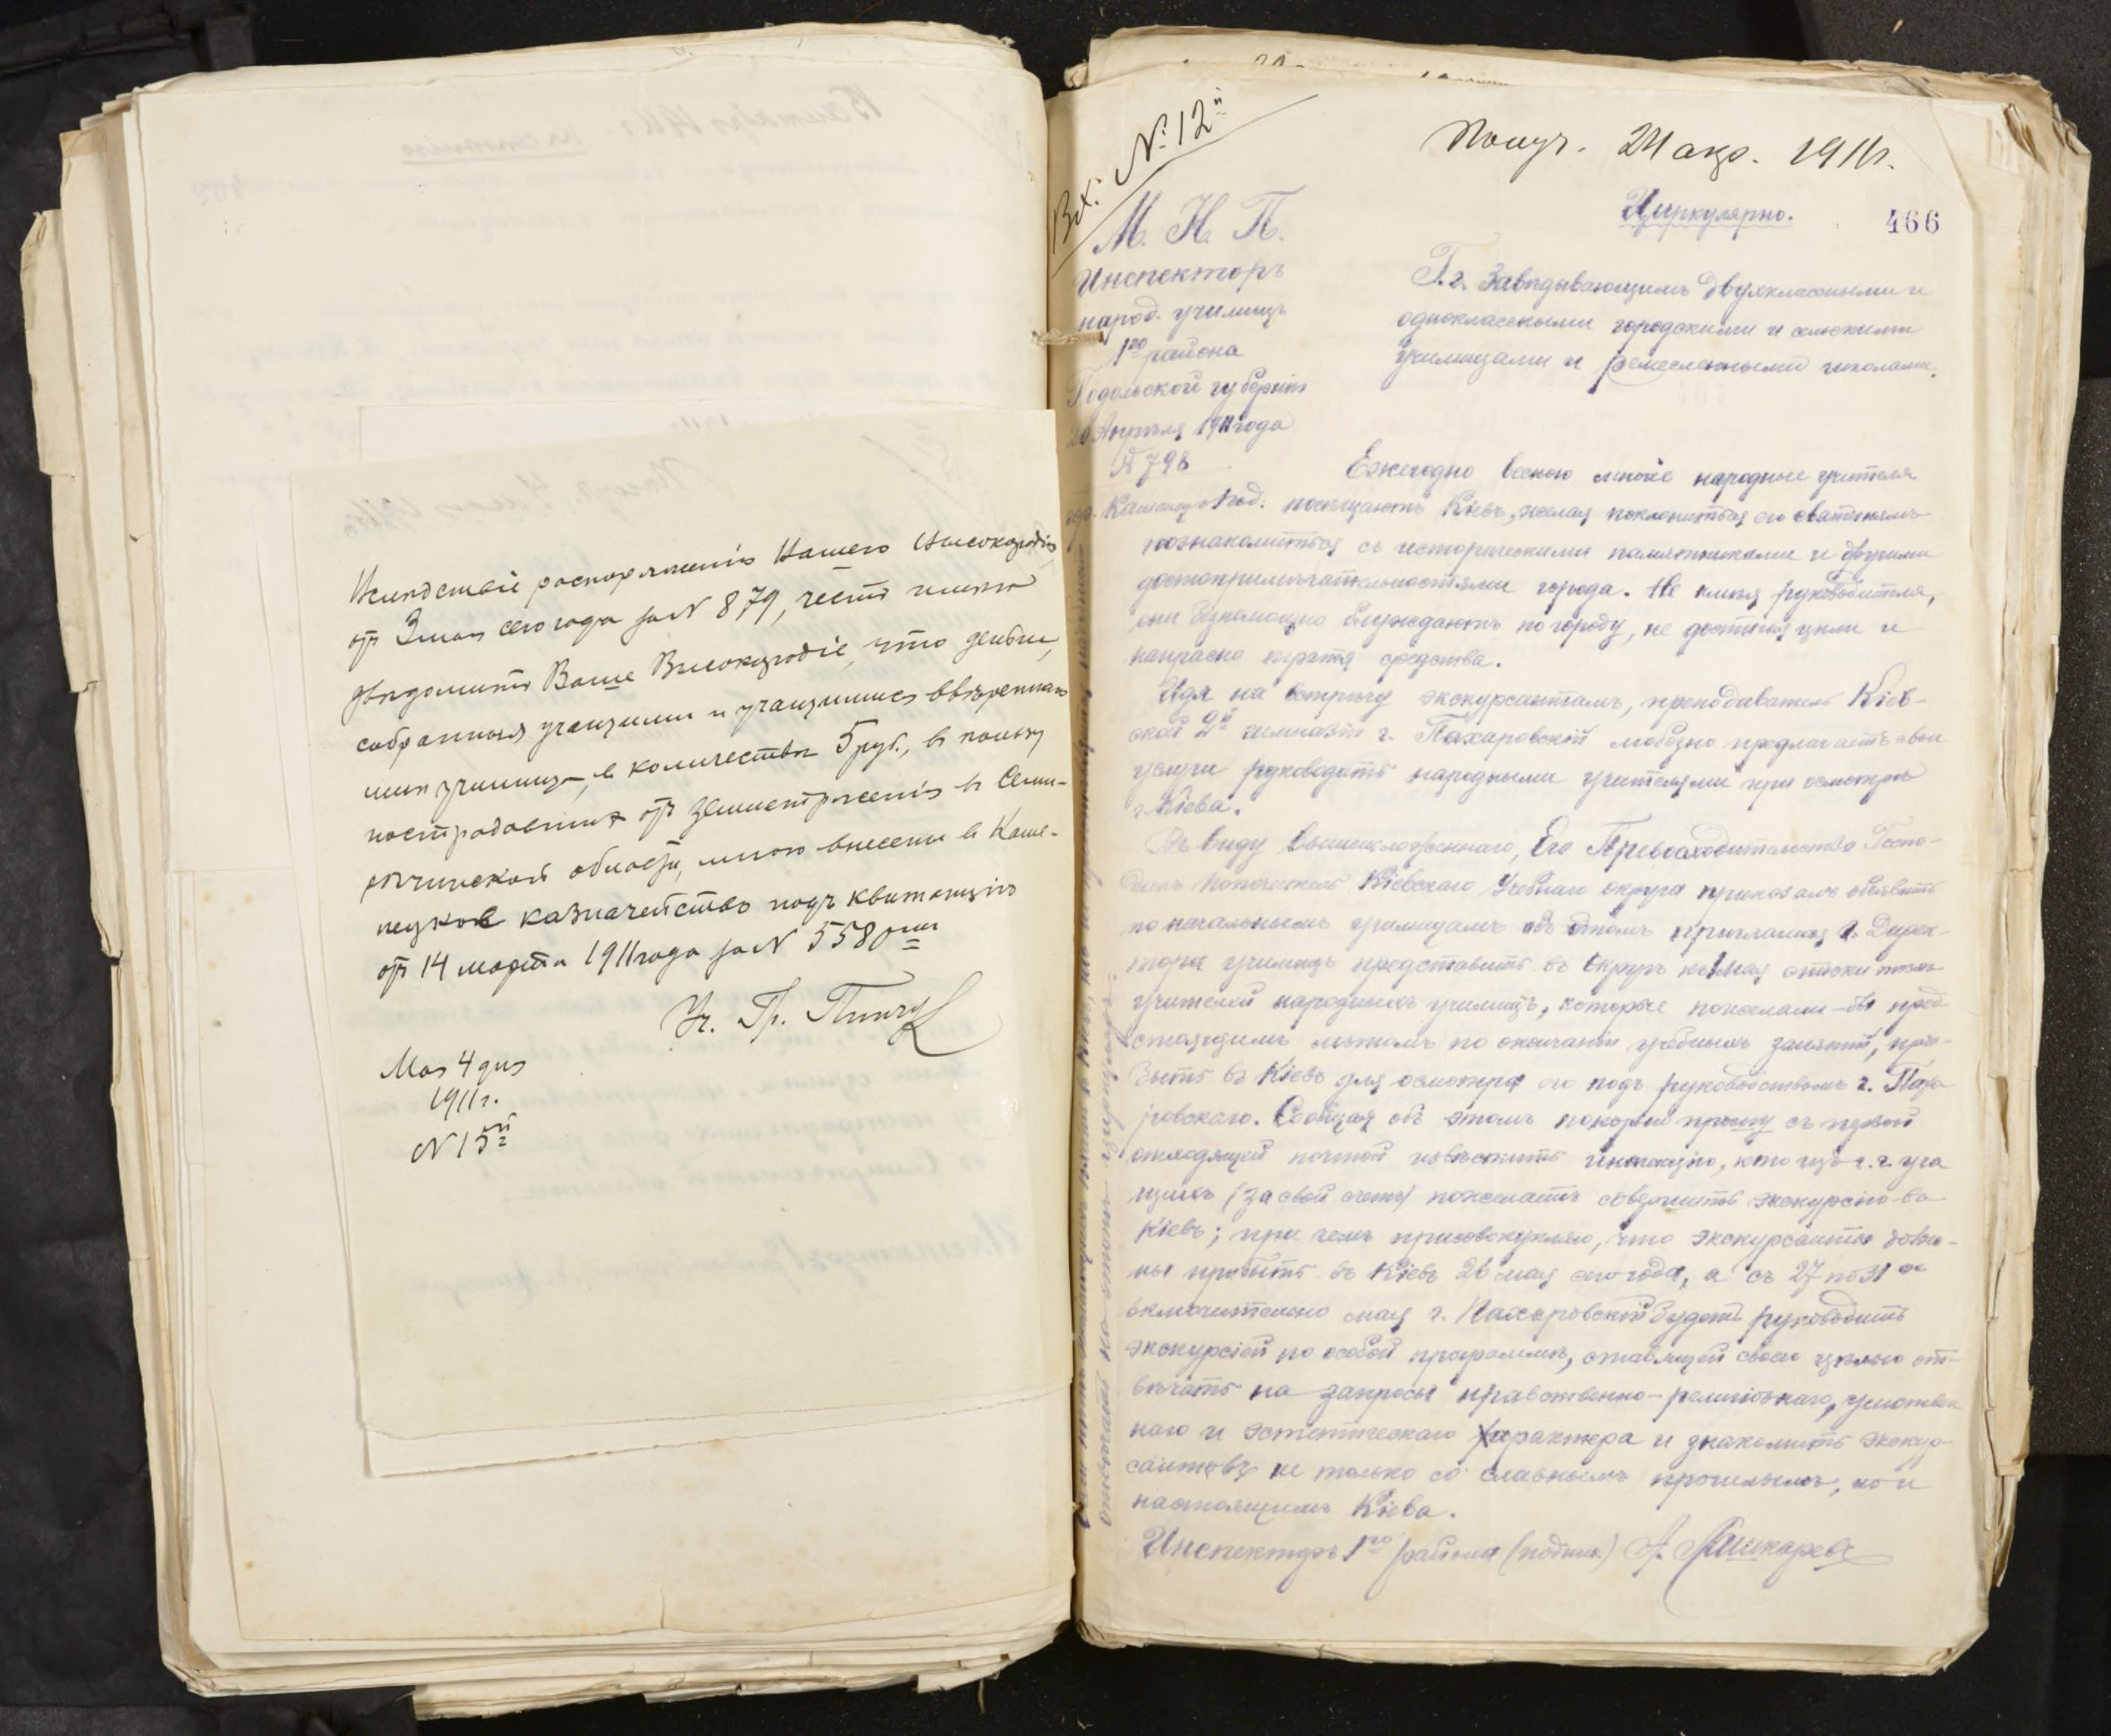 Вследствіе распоряженія Вашего Высокородія,
отъ 3 мая сего года за N 879, честь имѣю
увѣдомить Ваше Высокородіе, что деньги,
собранныя учащими и учащимися ввѣреннаго
мнѣ училища, въ количествѣ 5 руб., въ пользу
пострадавшихъ отъ землетрясенія въ Семи-
рѣчинской области, мною внесены въ Каме-
нецкое казначейство подъ квитанцію
отъ 14 марта 1911 года за N 558
Уч. Гр.
Мая 4 дня
1911 г.
N 15й
Вх. № 12й
Получ. 24 апр. 1911 г.
Циркулярно.
466
М. Н. П.
Инспекторъ
народ. училищъ
1го района
Подольской губерніи
20 Апрѣля 1911 года
№ 798
гор. Каменецъ-Под.
Г.г. Завѣдывающимъ двухклассными и
одноклассными городскими и сельскими
училищами и ремесленными школами.
Ежегодно весною многіе народные учителя
посѣщаютъ Кіевъ, желая поклониться его святынямъ
познакомиться съ историческими памятниками и другими
достопримѣчательностями города. Не имѣя руководителя,
они безпомощно блуждаютъ по городу, не достигая цѣли и
напрасно тратя средства.
Идя на встрѣчу экскурсантамъ, преподаватель Кіев-
ской 2й гимназіи г. Пахаровскій любезно предлагаетъ свои
услуги руководить народными учителями при осмотрѣ
г. Кіева.
Въ виду вышеизложеннаго, Его Превосходительство Госпо-
динъ Попечитель Кіевскаго Учебнаго округа приказалъ объявить
по начальнымъ училищамъ объ этомъ приглашая г. Дирек-
тора училищъ представить въ округъ къ 1 мая списки
учителей народныхъ училищъ, которые пожелали-бы пред-
стоящимъ лѣтомъ по окончаніи учебныхъ занятій, при-
быть въ Кіевъ для осмотра его подъ руководствомъ г. Паха
ровскаго. Сообщая объ этомъ покорно прошу съ первой
отходящей почтой извѣстить инспекцію, кто изъ г.г. уча
щихъ (за свой счетъ) пожелаетъ совершить экскурсію въ
Кіевъ; при чемъ присовокупляю, что экскурсанты долж-
ны прибыть въ Кіевъ 26 мая сего года, а съ 27 по 31 ое
включительно мая г. Пахаровскій будетъ руководить
экскурсіей по особой программѣ, ставящей своею цѣлью от-
вѣчать на запросы нравственно-религіознаго, умствен
наго и эстетическаго характера и знакомить экскур-
сантовъ не только со славнымъ прошлымъ, но и
настоящимъ Кіева.
Инспекторъ 1го района (подпис.) А.